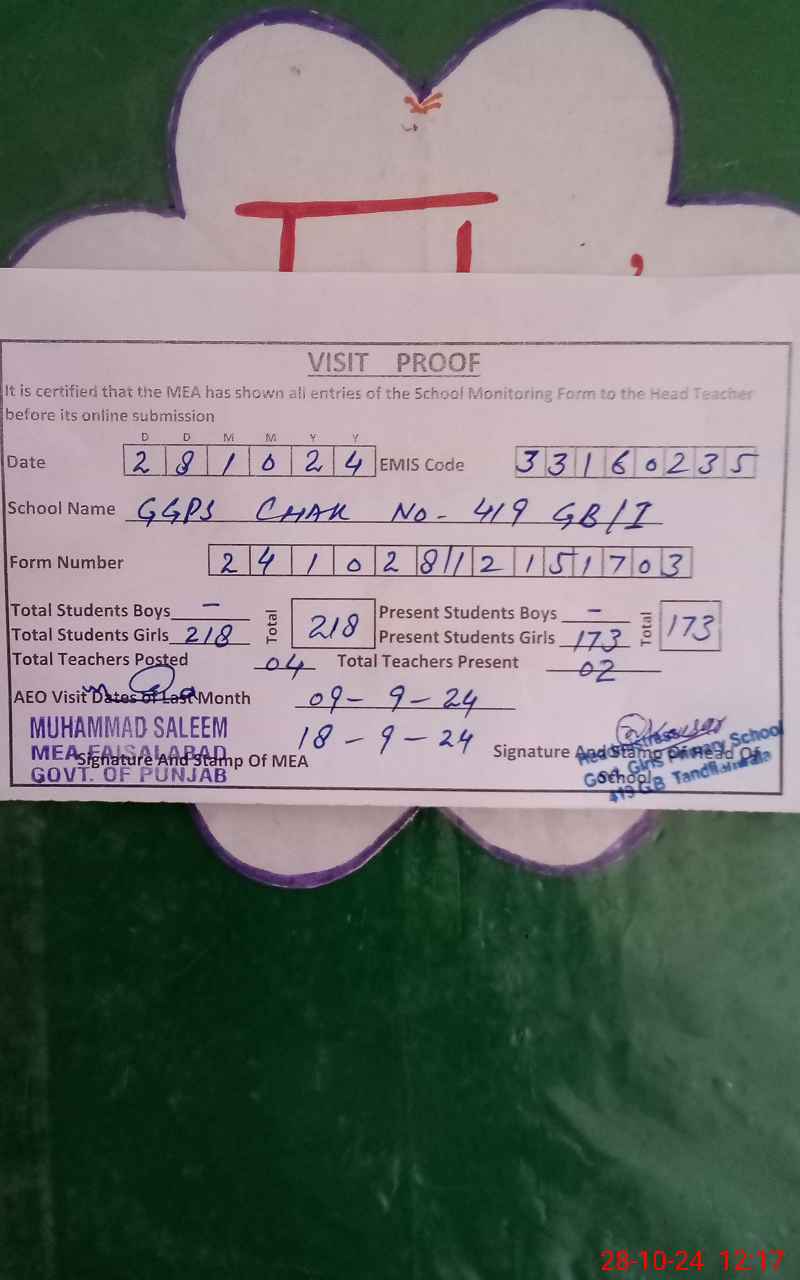 VISIT PROOF
It is certified that the MEA has shown all entries of the School Monitoring Form to the Head Teacher
before its online submission
D D M M Y Y
Date 2 8 1 0 2 4 EMIS Code 3 3 1 6 0 2 3 5
School Name GGPS CHAK NO - 419 GB/I
Form Number 2 4 1 0 2 8 1 2 1 5 1 7 0 3
Total Students Boys - Total 218 Present Students Boys - Total 173
Total Students Girls 218 Present Students Girls 173
Total Teachers Posted 04 Total Teachers Present 02
AEO Visit Dates of Last Month 09 - 9 - 24
18 - 9 - 24
MUHAMMAD SALEEM
MEA FAISALABAD
GOVT. OF PUNJAB
Signature And Stamp Of MEA
Signature And Stamp Of Head Of
School
Head Mistress
Govt. Girls Primary School
419 GB
28-10-24 12:17